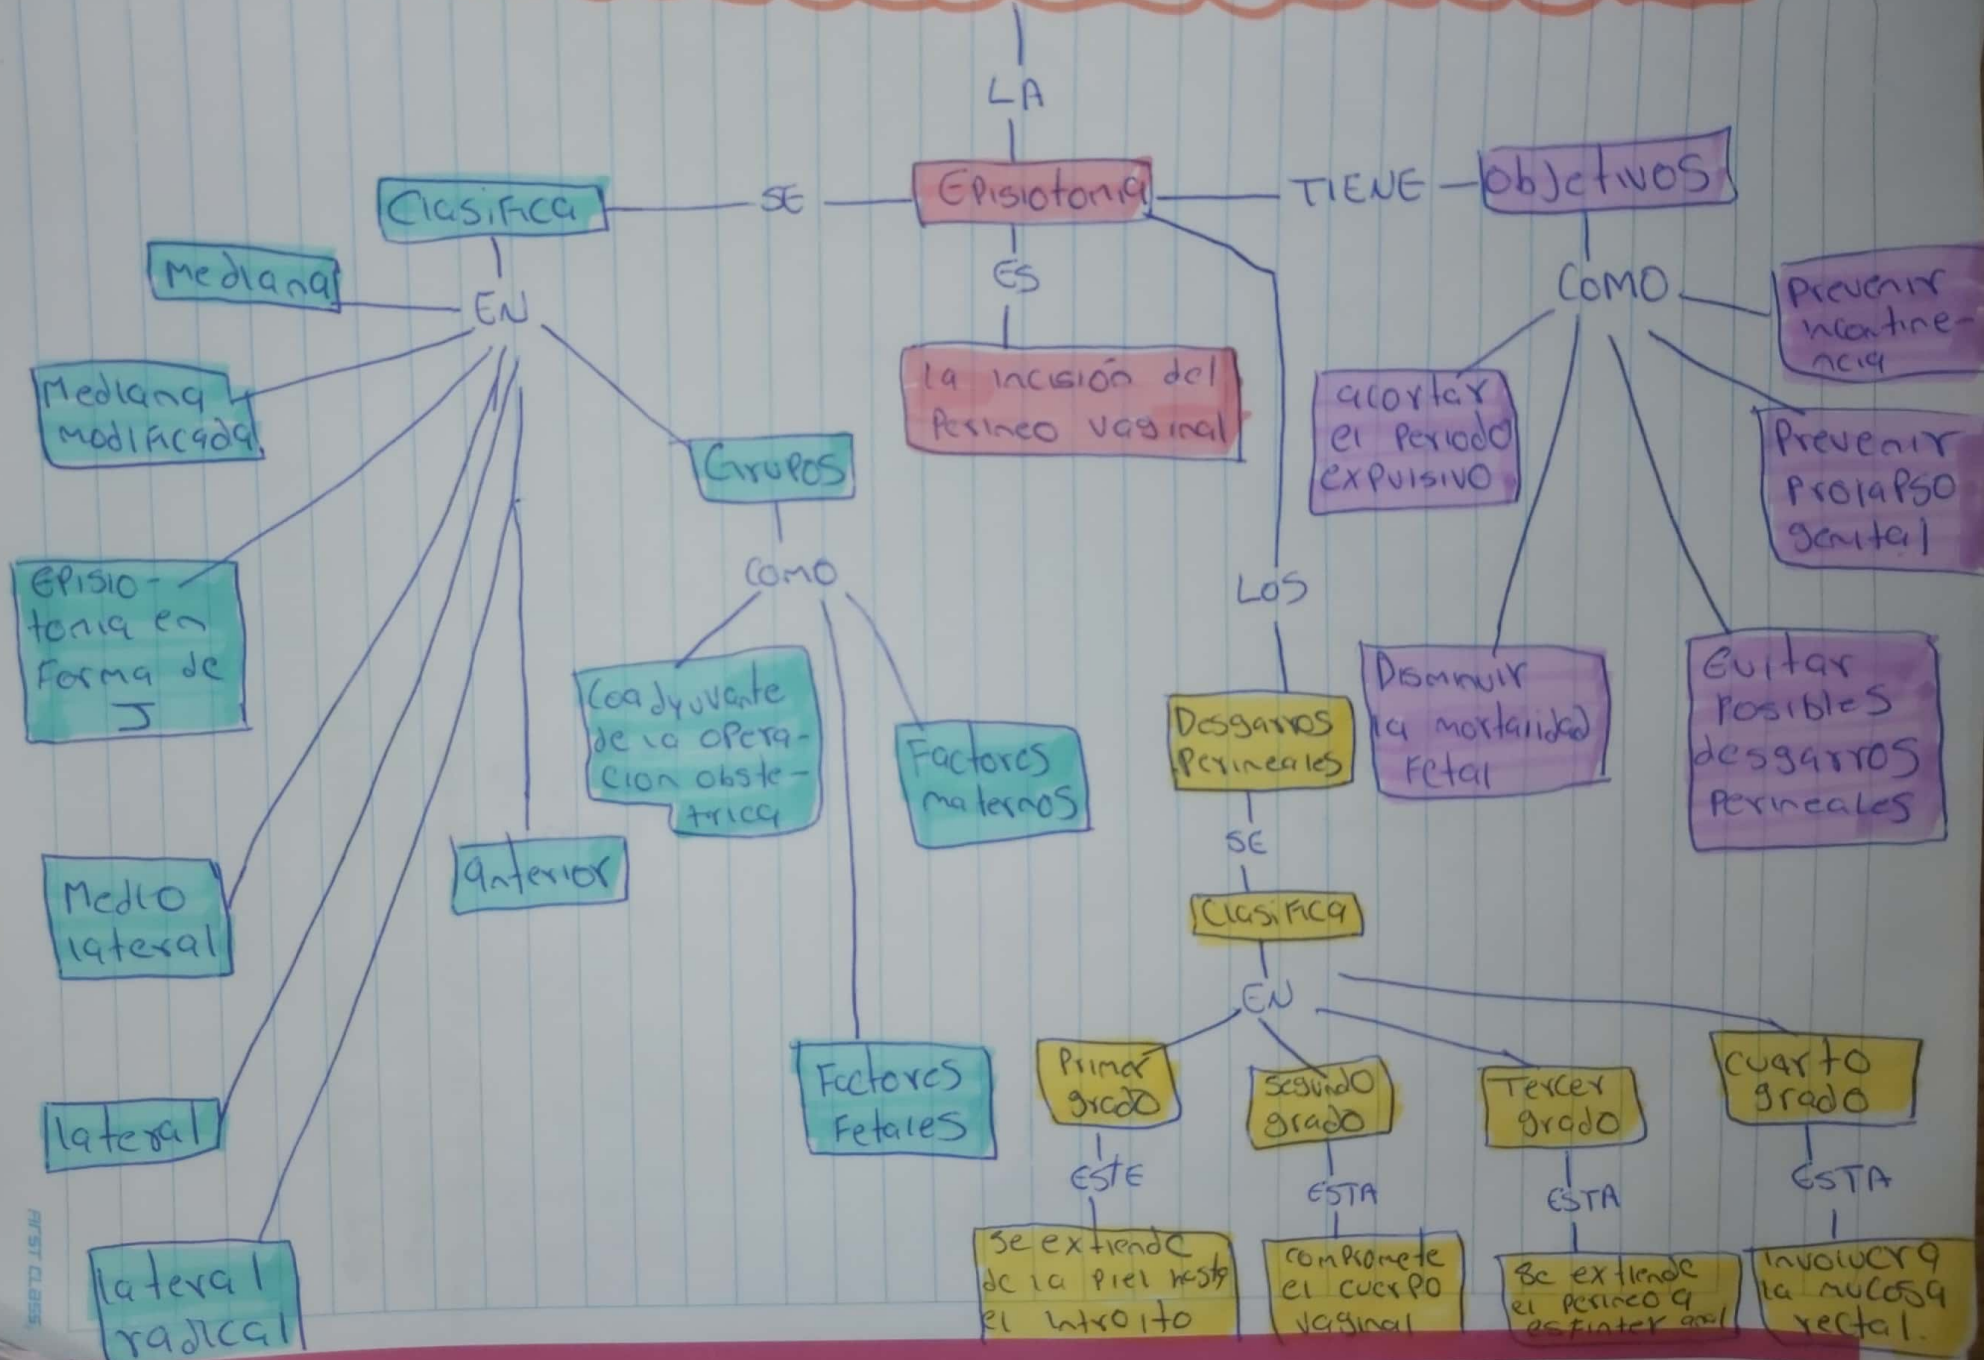 LA
Episiotomia
SE
Clasifica
EN
Mediana
Mediana
modificada
EPISIO-
tomia en
Forma de
J
Medio
lateral
lateral
lateral
radical
anterior
Grupos
como
Coadyuvante
de la opera-
cion obste-
trica
Factores
maternos
Factores
Fetales
ES
la incisión del
Perineo vaginal
TIENE
objetivos
COMO
acortar
el periodo
expulsivo
Disminuir
la mortalidad
Fetal
Evitar
Posibles
desgarros
Perineales
Prevenir
prolapso
genital
Prevenir
incontine-
ncia
LOS
Desgarros
Perineales
SE
Clasifica
EN
Primer
grado
ESTE
se extiende
de la piel hasta
el introito
segundo
grado
ESTA
compromete
el cuerpo
vaginal
Tercer
grado
ESTA
se extiende
el perineo a
esfinter anal
cuarto
grado
ESTA
involucra
la mucosa
rectal.
FIRST CLASS.